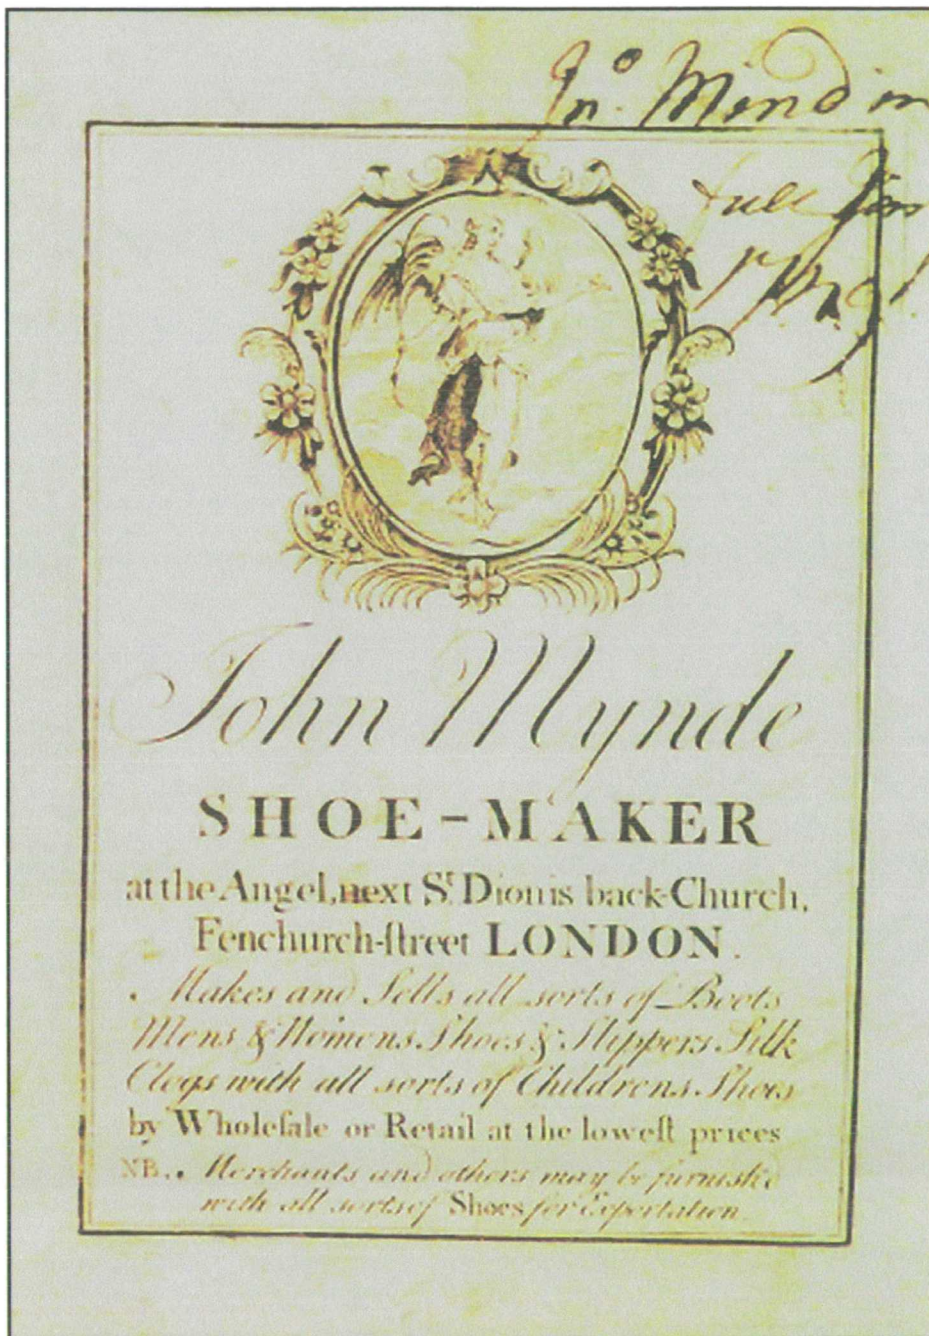 Jno. Mind in
full
John Mynde
SHOE-MAKER
at the Angel, next St. Dionis back-Church,
Fenchurch-ſtreet LONDON.
Makes and Sells all sorts of Boots
Mens & Womens Shoes & Slippers Silk
Clogs with all sorts of Childrens Shoes
by Wholeſale or Retail at the loweſt prices
NB.. Merchants and others may be furnish'd
with all sorts of Shoes for Exportation.